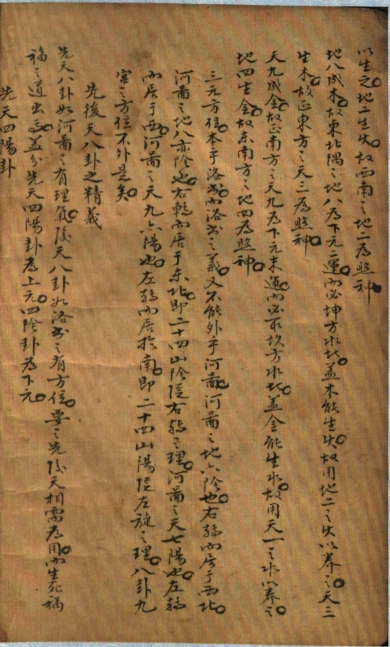 以生之地二生火故西南之地二為照神
地八成木故東北隅之地八為下元二運而必坤方水者蓋木能生火故用地二之火以養之天三
生木故正東方之天三為照神
天九成金故正南方之天九為下元末運而必取坎方水者蓋金能生水故用天一之水以養之
地四生金故東南方之地四為照神
三元方位本乎洛書而洛書之義又不能外乎河啚河啚之地六陰也右轉而居于西北
河啚之地八亦陰也右轉而居于东北即二十四山陰從右轉之理河啚之天七陽也左轉
而居于西河啚之天九亦陽也左轉而居於南即二十四山陽從左旋之理八卦九
宮之方位不外是矣
先後天八卦之精義
先天八卦如河啚之有理氣後天八卦如洛書之有方位要之先後天相需為用而生死禍
福之道出焉蓋分先天四陽卦為上元四陰卦為下元
先天四陽卦